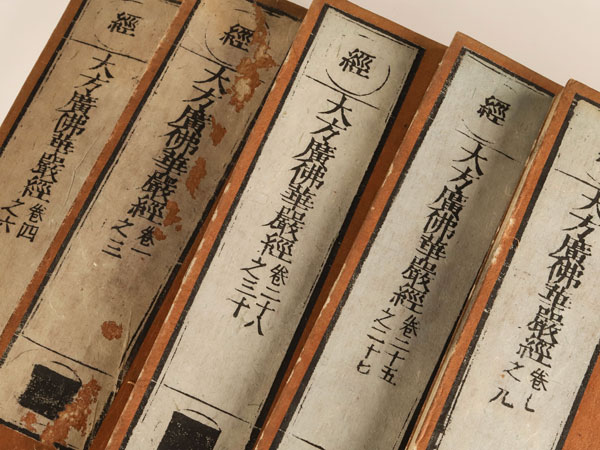 經
大方廣佛華嚴經 卷四之六
經
大方廣佛華嚴經 卷一之三
經
大方廣佛華嚴經 卷二十八之三十
經
大方廣佛華嚴經 卷二十五之二十七
經
大方廣佛華嚴經 卷七之九